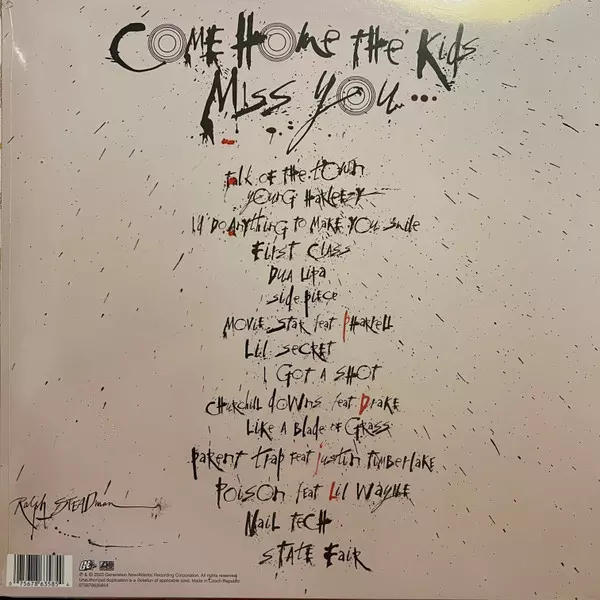 Come Home the Kids
Miss You...
talk of the town
young harleezy
I'd Do Anything to Make You Smile
First Class
Dua Lipa
side piece
Movie Star feat Pharrell
Lil Secret
I Got A Shot
Churchill Downs feat Drake
Like A Blade of Grass
Parent Trap feat justin timberlake
Poison feat Lil Wayne
Nail Tech
State Fair
Ralph STEADman
All rights reserved.
Unauthorized duplication is a violation of applicable laws. Made in Czech Republic